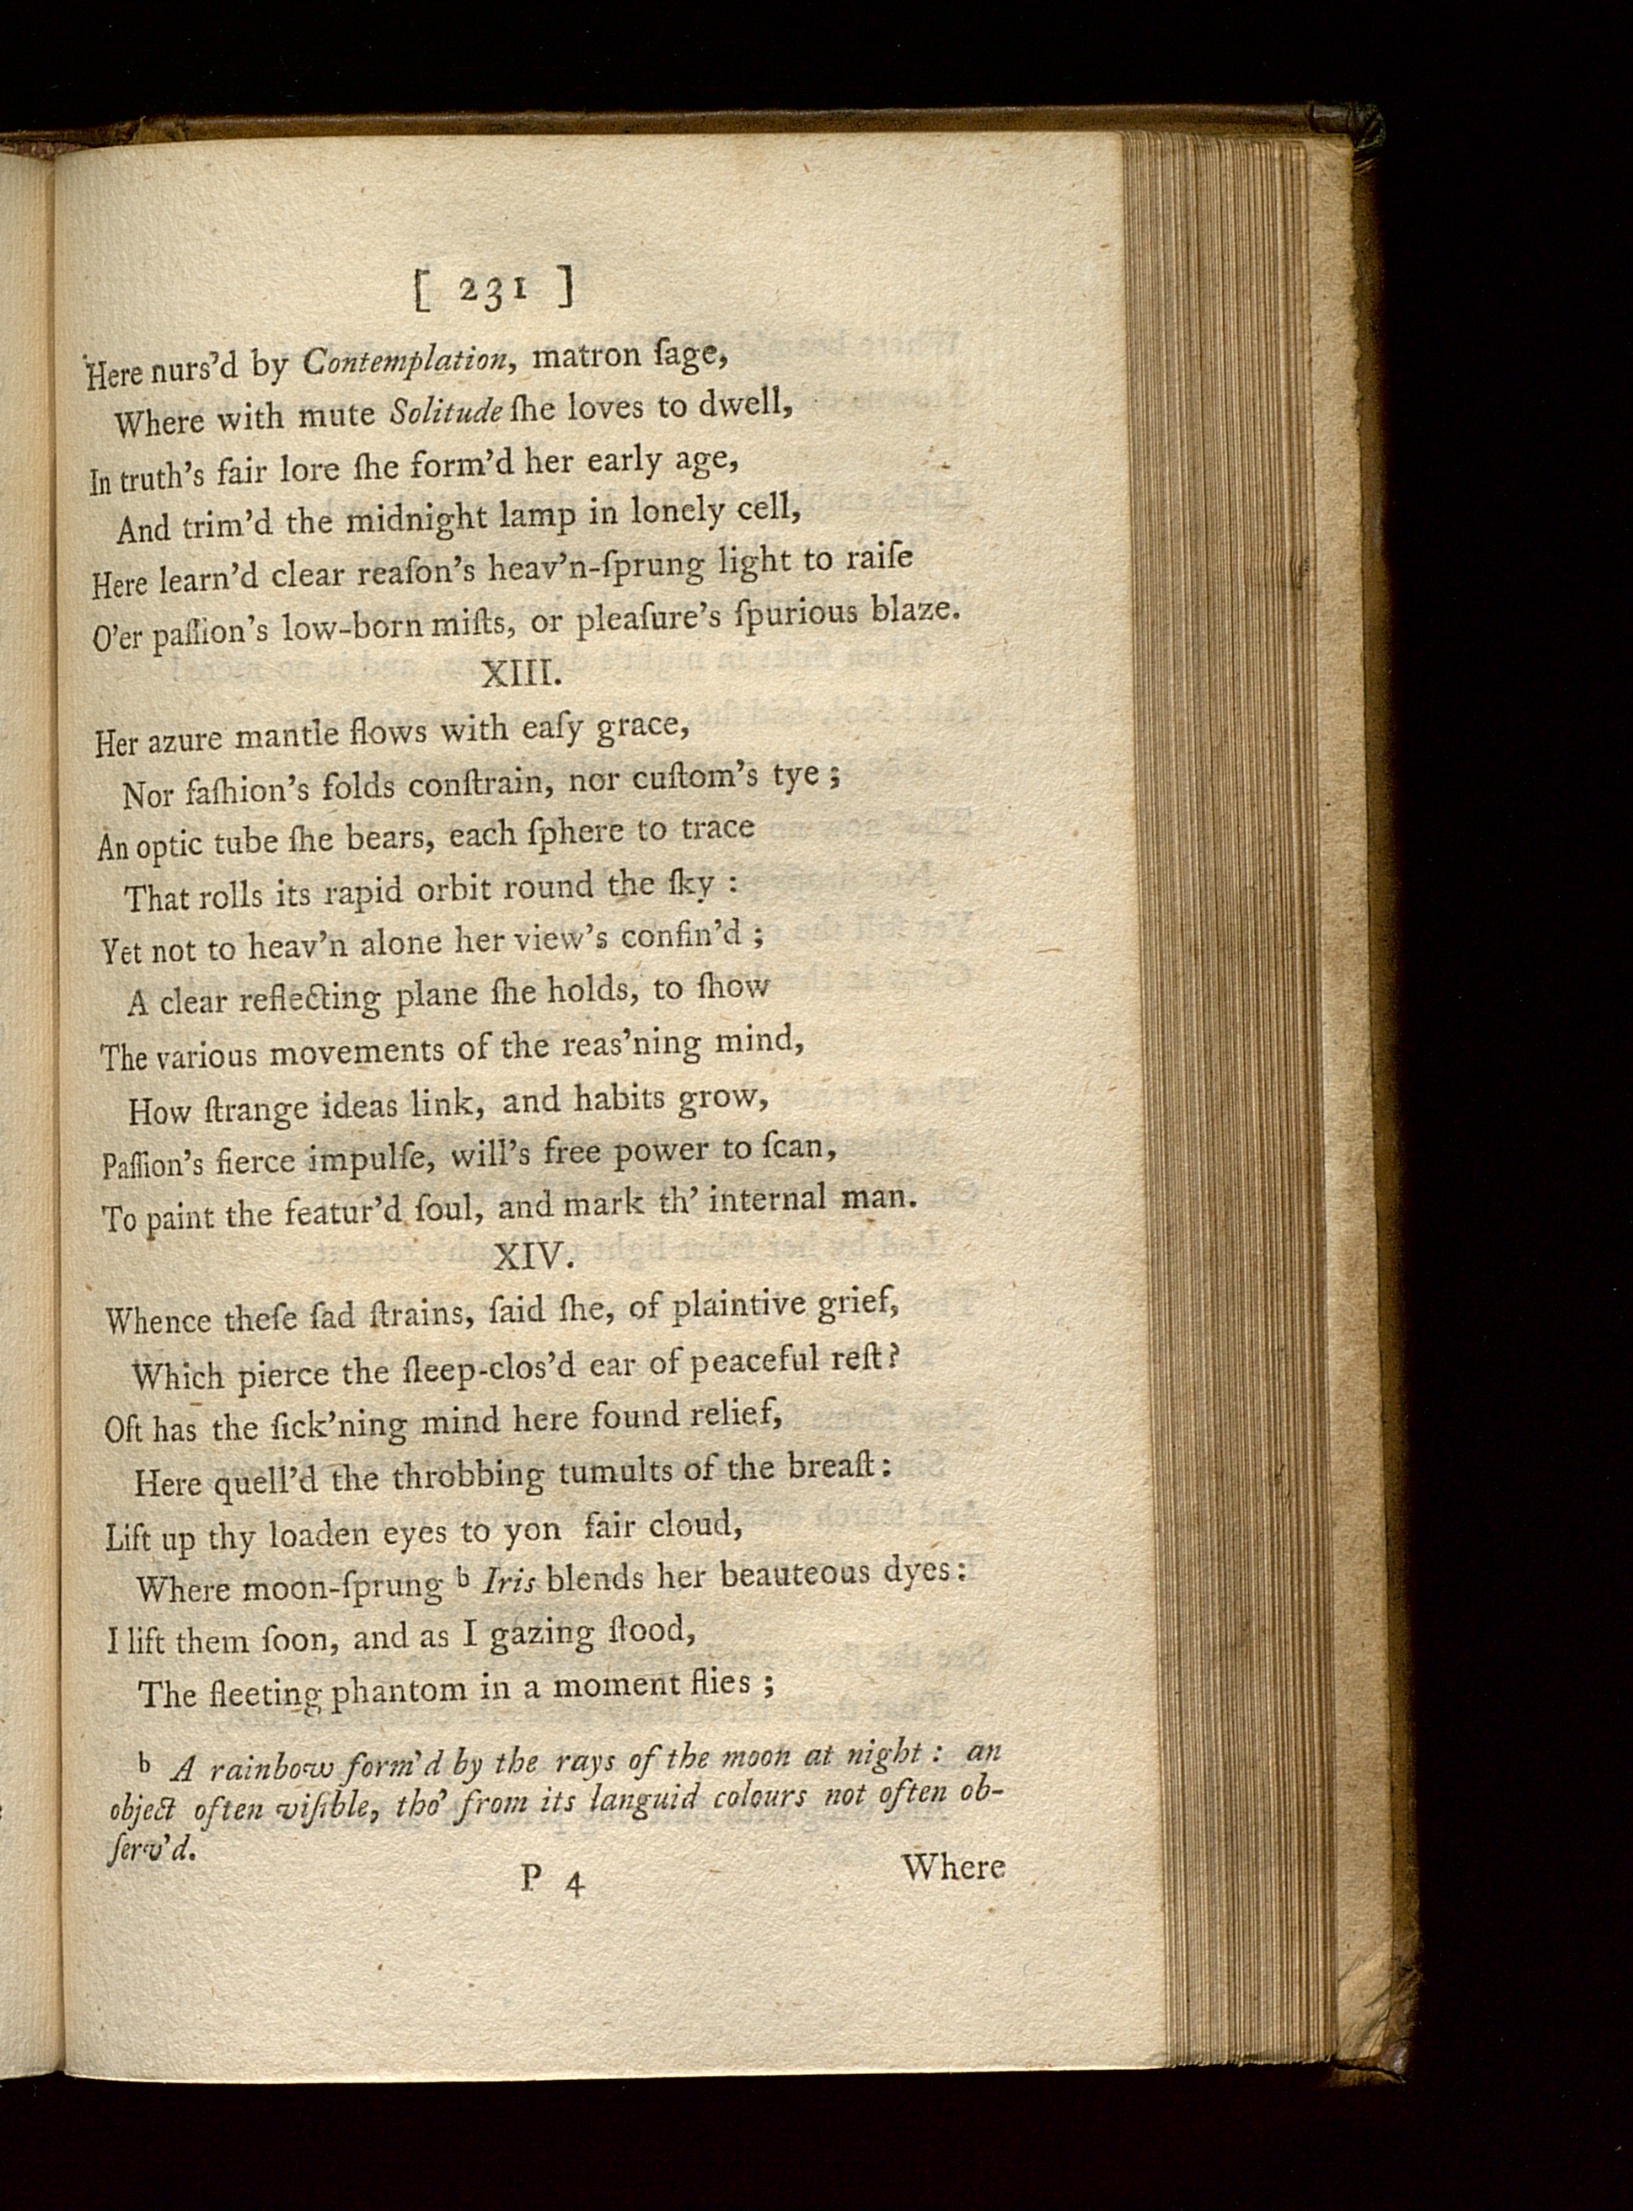 [ 231 ]
Here nurs'd by Contemplation, matron ſage,
Where with mute Solitude ſhe loves to dwell,
In truth's fair lore ſhe form'd her early age,
And trim'd the midnight lamp in lonely cell,
Here learn'd clear reaſon's heav'n-ſprung light to raiſe
O'er paſſion's low-born miſts, or pleaſure's ſpurious blaze.
XIII.
Her azure mantle flows with eaſy grace,
Nor faſhion's folds conſtrain, nor cuſtom's tye ;
An optic tube ſhe bears, each ſphere to trace
That rolls its rapid orbit round the ſky :
Yet not to heav'n alone her view's confin'd ;
A clear reflecting plane ſhe holds, to ſhow
The various movements of the reas'ning mind,
How ſtrange ideas link, and habits grow,
Paſſion's fierce impulſe, will's free power to ſcan,
To paint the featur'd ſoul, and mark th' internal man.
XIV.
Whence theſe ſad ſtrains, ſaid ſhe, of plaintive grief,
Which pierce the ſleep-clos'd ear of peaceful reſt?
Oft has the ſick'ning mind here found relief,
Here quell'd the throbbing tumults of the breaſt:
Lift up thy loaden eyes to yon fair cloud,
Where moon-ſprung b Iris blends her beauteous dyes:
I lift them ſoon, and as I gazing ſtood,
The fleeting phantom in a moment flies ;
b A rainbow form'd by the rays of the moon at night : an
object often viſible, tho' from its languid colours not often ob-
ſerv'd.
P 4
Where